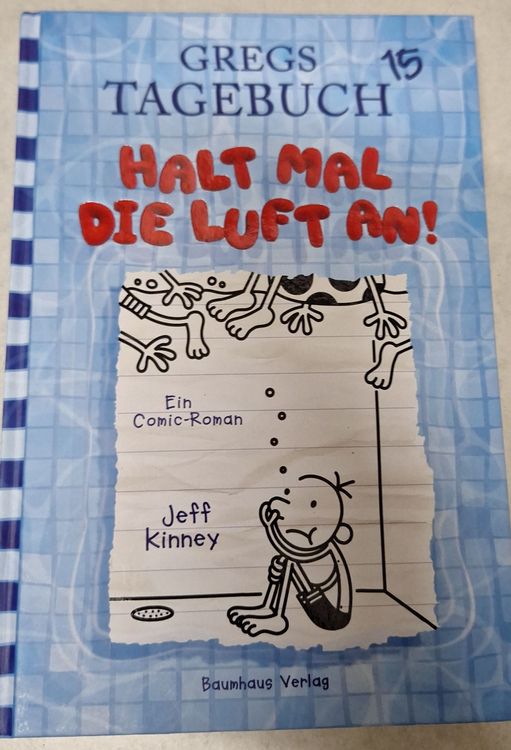 GREGS
TAGEBUCH 15
HALT MAL
DIE LUFT AN!
Ein
Comic-Roman
Jeff
Kinney
Baumhaus Verlag